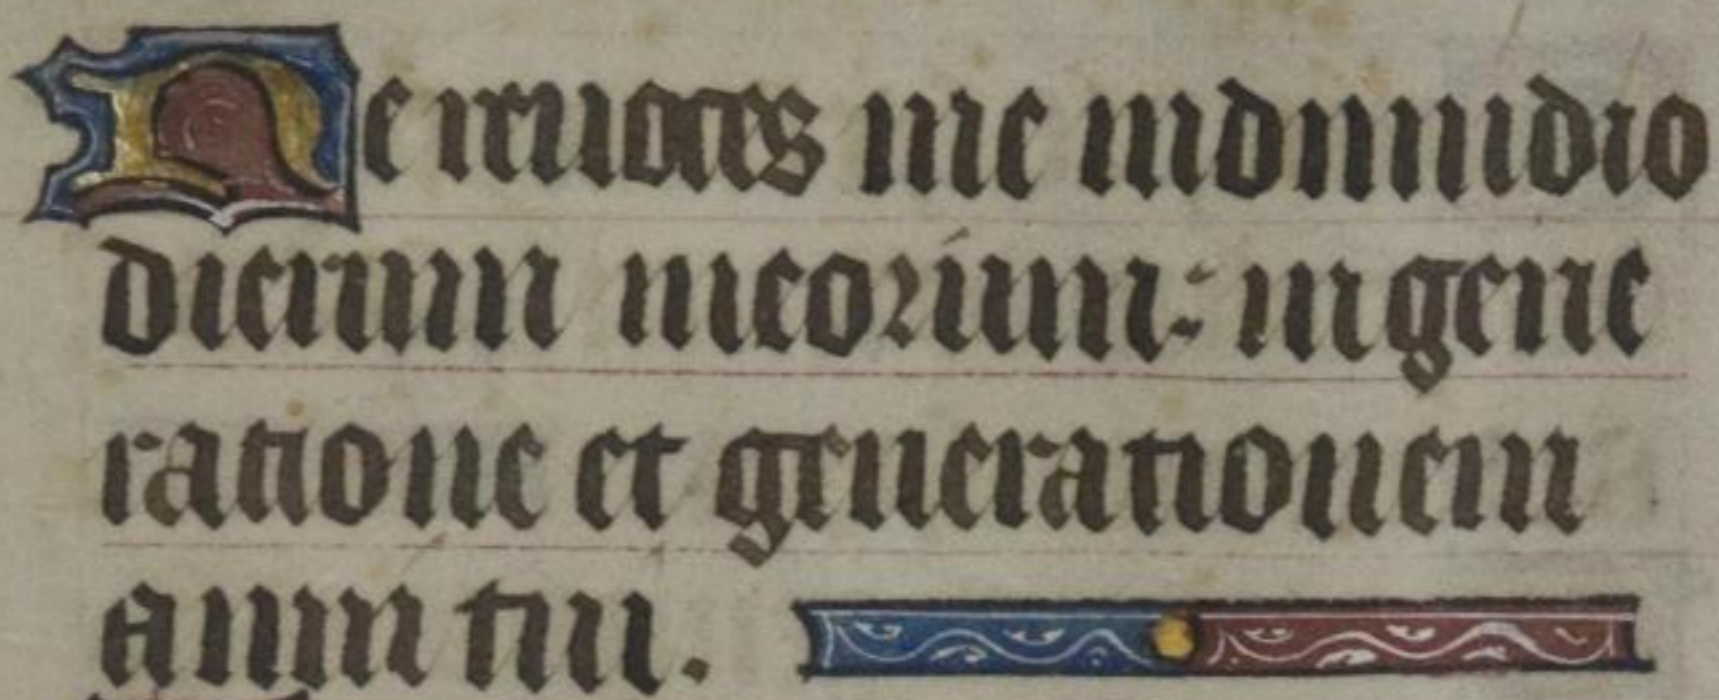 Ne reuoces me indimidio
dierum meorum: in gene
ratione et generationem
anni tui.